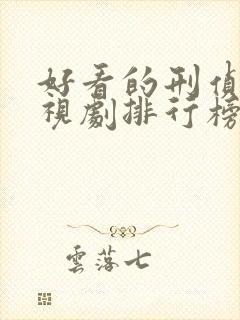 好看的刑偵
視劇排行榜
雲落七